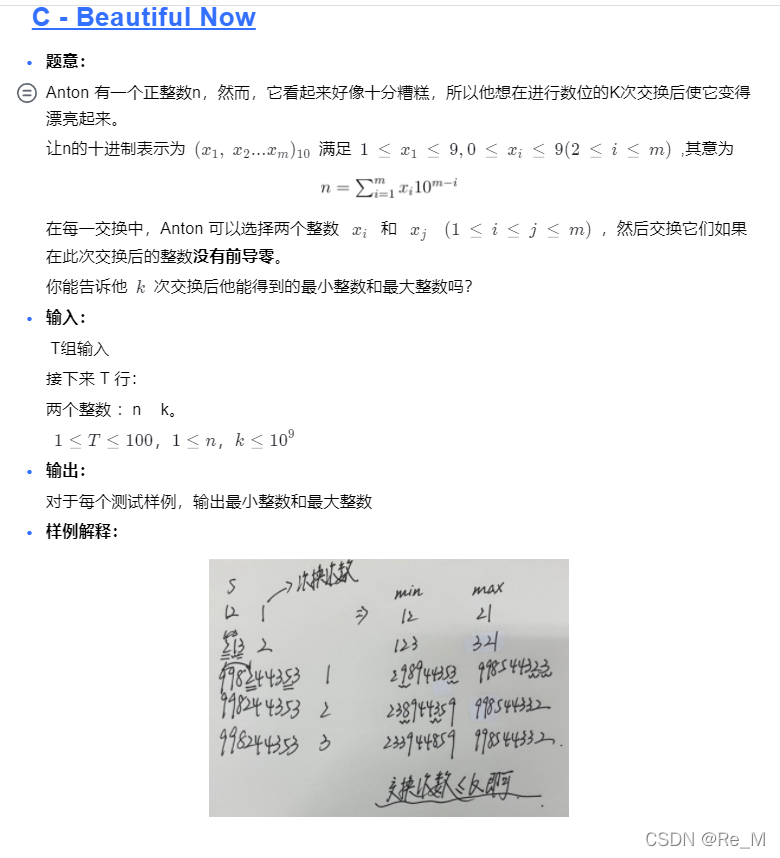 C - Beautiful Now
题意：
Anton 有一个正整数n，然而，它看起来好像十分糟糕，所以他想在进行数位的K次交换后使它变得
漂亮起来。
让n的十进制表示为 (x₁, x₂...xₘ)₁₀ 满足 1 ≤ x₁ ≤ 9, 0 ≤ xᵢ ≤ 9(2 ≤ i ≤ m) ,其意为
n = ∑ᵢ₌₁ᵐ xᵢ10ᵐ⁻ⁱ
在每一交换中，Anton 可以选择两个整数 xᵢ 和 xⱼ (1 ≤ i ≤ j ≤ m) ，然后交换它们如果
在此次交换后的整数没有前导零。
你能告诉他 k 次交换后他能得到的最小整数和最大整数吗？
输入：
T组输入
接下来 T 行：
两个整数 ：n k。
1 ≤ T ≤ 100，1 ≤ n，k ≤ 10⁹
输出：
对于每个测试样例，输出最小整数和最大整数
样例解释：
S 次换次数 min max
12 1 ⇒ 12 21
213 2 123 321
998244353 1 298944353 998544323
998244353 2 238944359 998544332
998244353 3 233944859 998544332.
交换次数≤k即可
CSDN @Re_M